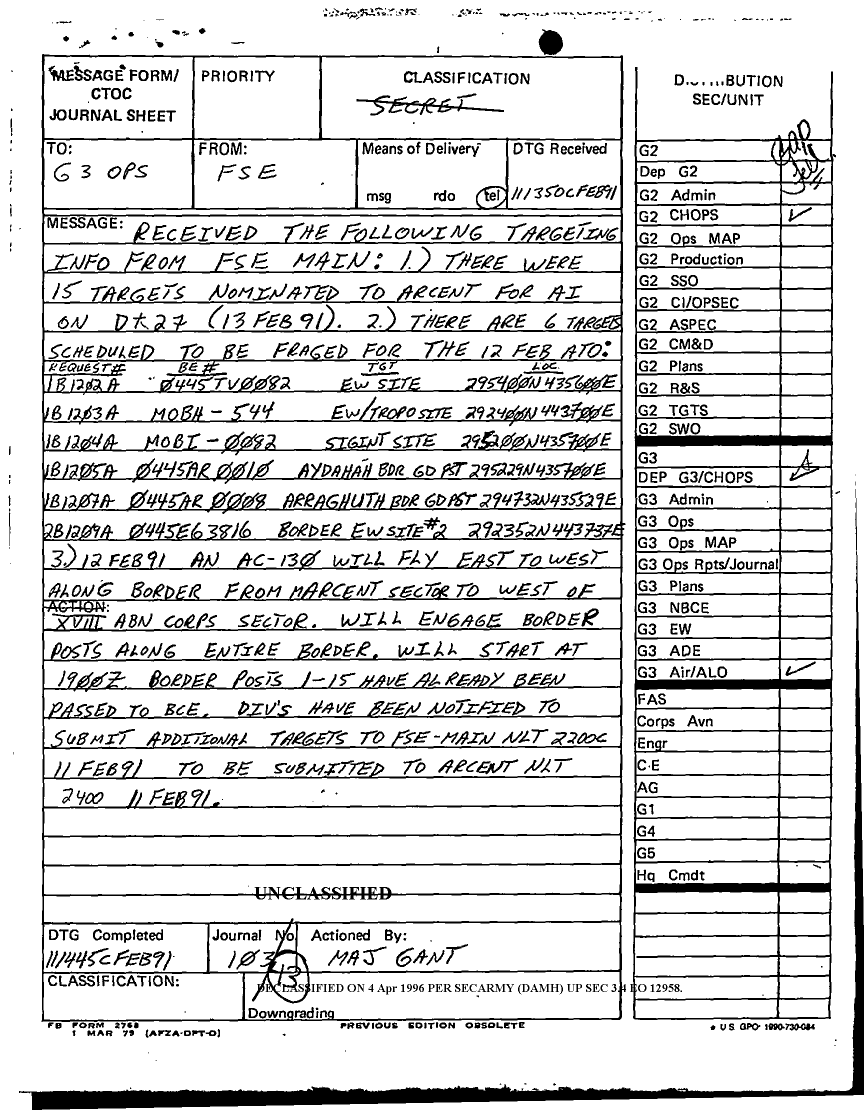 MESSAGE FORM/
CTOC
JOURNAL SHEET
PRIORITY
CLASSIFICATION
SECRET
TO:
G3 OPS
FROM:
FSE
Means of Delivery
msg rdo tel
DTG Received
111350CFEB91
MESSAGE: RECEIVED THE FOLLOWING TARGETING
INFO FROM FSE MAIN: 1.) THERE WERE
15 TARGETS NOMINATED TO ARCENT FOR AI
ON D+27 (13 FEB 91). 2.) THERE ARE 6 TARGETS
SCHEDULED TO BE FRAGED FOR THE 12 FEB ATO:
REQUEST# BE# TGT LOC.
1B1202A 0445TV0082 EW SITE 295400N435600E
1B1203A MOBH-544 EW/TROPO SITE 292400N443700E
1B1204A MOBI-0082 SIGINT SITE 295200N435700E
1B1205A 0445AR0010 AYDAHAH BDR GD PST 295229N435700E
1B1207A 0445AR0008 ARRAGHUTH BDR GD PST 294732N435529E
2B1209A 0445E63816 BORDER EW SITE #2 292352N443737E
3.) 12 FEB 91 AN AC-130 WILL FLY EAST TO WEST
ALONG BORDER FROM MARCENT SECTOR TO WEST OF
ACTION:
XVIII ABN CORPS SECTOR. WILL ENGAGE BORDER
POSTS ALONG ENTIRE BORDER. WILL START AT
1900Z. BORDER POSTS 1-15 HAVE ALREADY BEEN
PASSED TO BCE. DIV'S HAVE BEEN NOTIFIED TO
SUBMIT ADDITIONAL TARGETS TO FSE-MAIN NLT 2200C
11 FEB 91 TO BE SUBMITTED TO ARCENT NLT
2400 11 FEB 91.
UNCLASSIFIED
DTG Completed
111445CFEB91
Journal No
103
13
Actioned By:
MAJ GANT
CLASSIFICATION:
DECLASSIFIED ON 4 Apr 1996 PER SECARMY (DAMH) UP SEC 3.4 EO 12958.
Downgrading
FB FORM 2768
1 MAR 79 (AFZA-DPT-O)
PREVIOUS EDITION OBSOLETE
U S GPO: 1990-730-084
SEC/UNIT
G2
Dep G2
G2 Admin
G2 CHOPS
G2 Ops MAP
G2 Production
G2 SSO
G2 CI/OPSEC
G2 ASPEC
G2 CM&D
G2 Plans
G2 R&S
G2 TGTS
G2 SWO
G3
DEP G3/CHOPS
G3 Admin
G3 Ops
G3 Ops MAP
G3 Ops Rpts/Journal
G3 Plans
G3 NBCE
G3 EW
G3 ADE
G3 Air/ALO
FAS
Corps Avn
Engr
C-E
AG
G1
G4
G5
Hq Cmdt